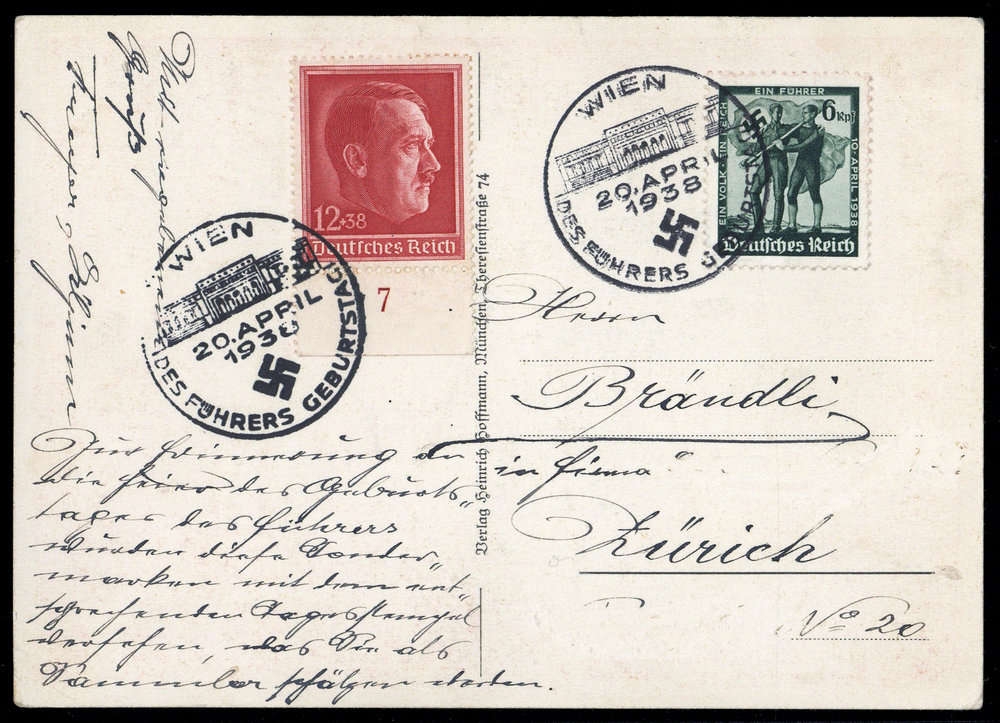 Mit vergnügtem
Gruß
12+38
Deutsches Reich
7
WIEN
20.APRIL
1938
DES FÜHRERS GEBURTSTAG
Zur Erinnerung an
die Feier des Geburts-
tages des Führers
wurden diese Sonder-
marken mit dem ent-
sprechenden Tagesstempel
versehen, was Sie als
Sammler schätzen werden.
Verlag Heinrich Hoffmann, München, Theresienstraße 74
WIEN
20.APRIL
1938
DES FÜHRERS GEBURTSTAG
EIN VOLK EIN REICH
EIN FÜHRER
6 Rpf
10·APRIL·1938
Deutsches Reich
Herrn
Brändli
in Firma
Zürich
No 20